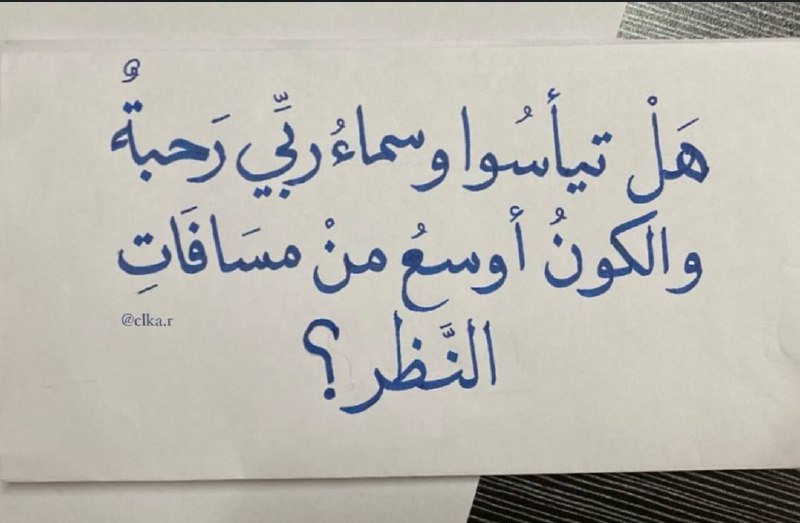 هَلْ تيأسُوا وسماءُ ربِّي رَحبةٌ
والكونُ أوسعُ منْ مسَافَاتِ
@clka.r
النَّظر؟